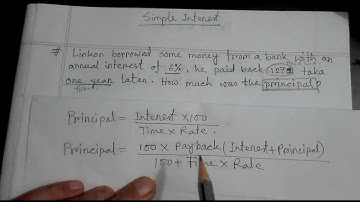 Simple Interest
# Linkon borrowed some money from a bank, with an
annual interest of 6%, he paid back 1272 taka
one year later. How much was the principal?
time
Principal = Interest × 100
Time × Rate.
Principal = 100 × Payback (Interest + Principal)
100 + Time × Rate